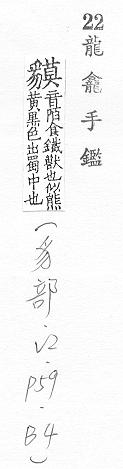 22龍龕手鑑
貘音陌食鐵獸也似熊
黃黑色出蜀中也
(豸部.V2.P59.B4)